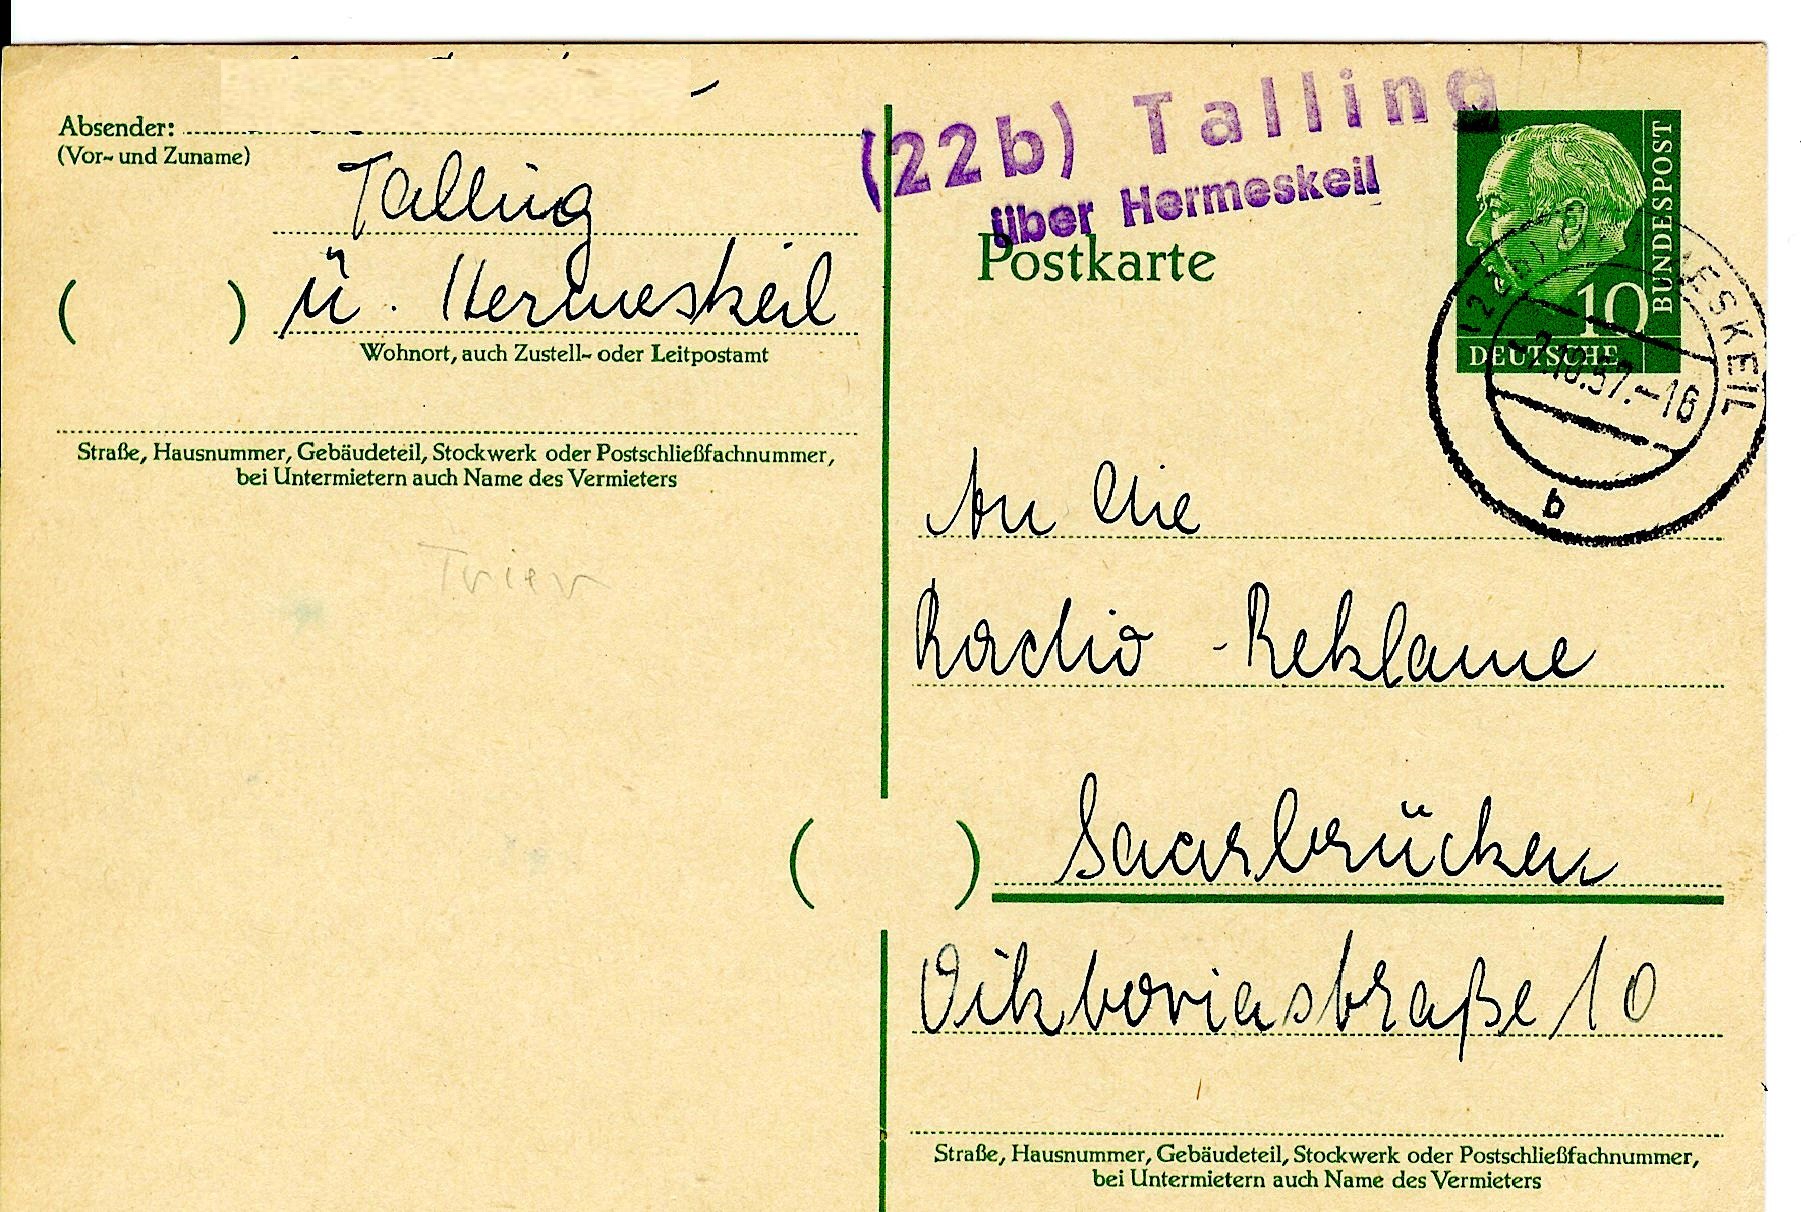 Absender:
(Vor- und Zuname)
Talling
ü. Hermeskeil
( )
Wohnort, auch Zustell- oder Leitpostamt
Straße, Hausnummer, Gebäudeteil, Stockwerk oder Postschließfachnummer,
bei Untermietern auch Name des Vermieters
Trier
(22b) Talling
über Hermeskeil
Postkarte
10
DEUTSCHE
BUNDESPOST
HERMESKEIL
.10.57.-16
b
An die
Radio-Reklame
( ) Saarbrücken
Viktoriastraße 10
Straße, Hausnummer, Gebäudeteil, Stockwerk oder Postschließfachnummer,
bei Untermietern auch Name des Vermieters